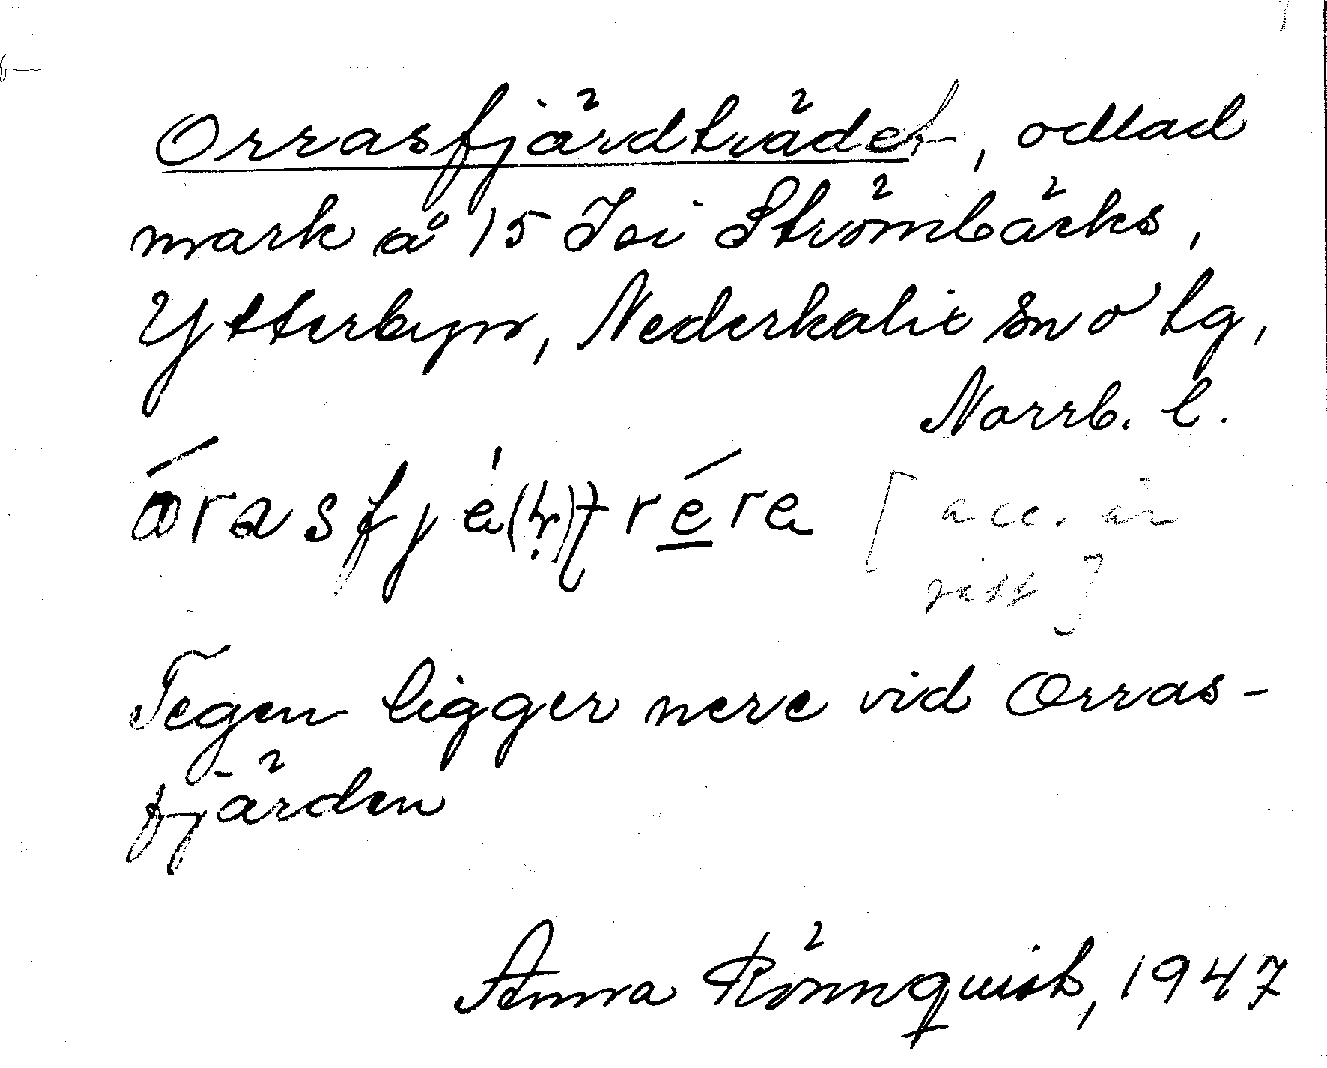 Orrasfjärdträdet, odlad
mark å 15 Joi Strömbäcks,
Ytterbyn, Nederkalix sn o tg,
Norrb. l.
órasfjè(ḥ)trére [acc. är
rätt]
Tegen ligger nere vid Orras-
fjärden
Anna Rönnquist, 1947